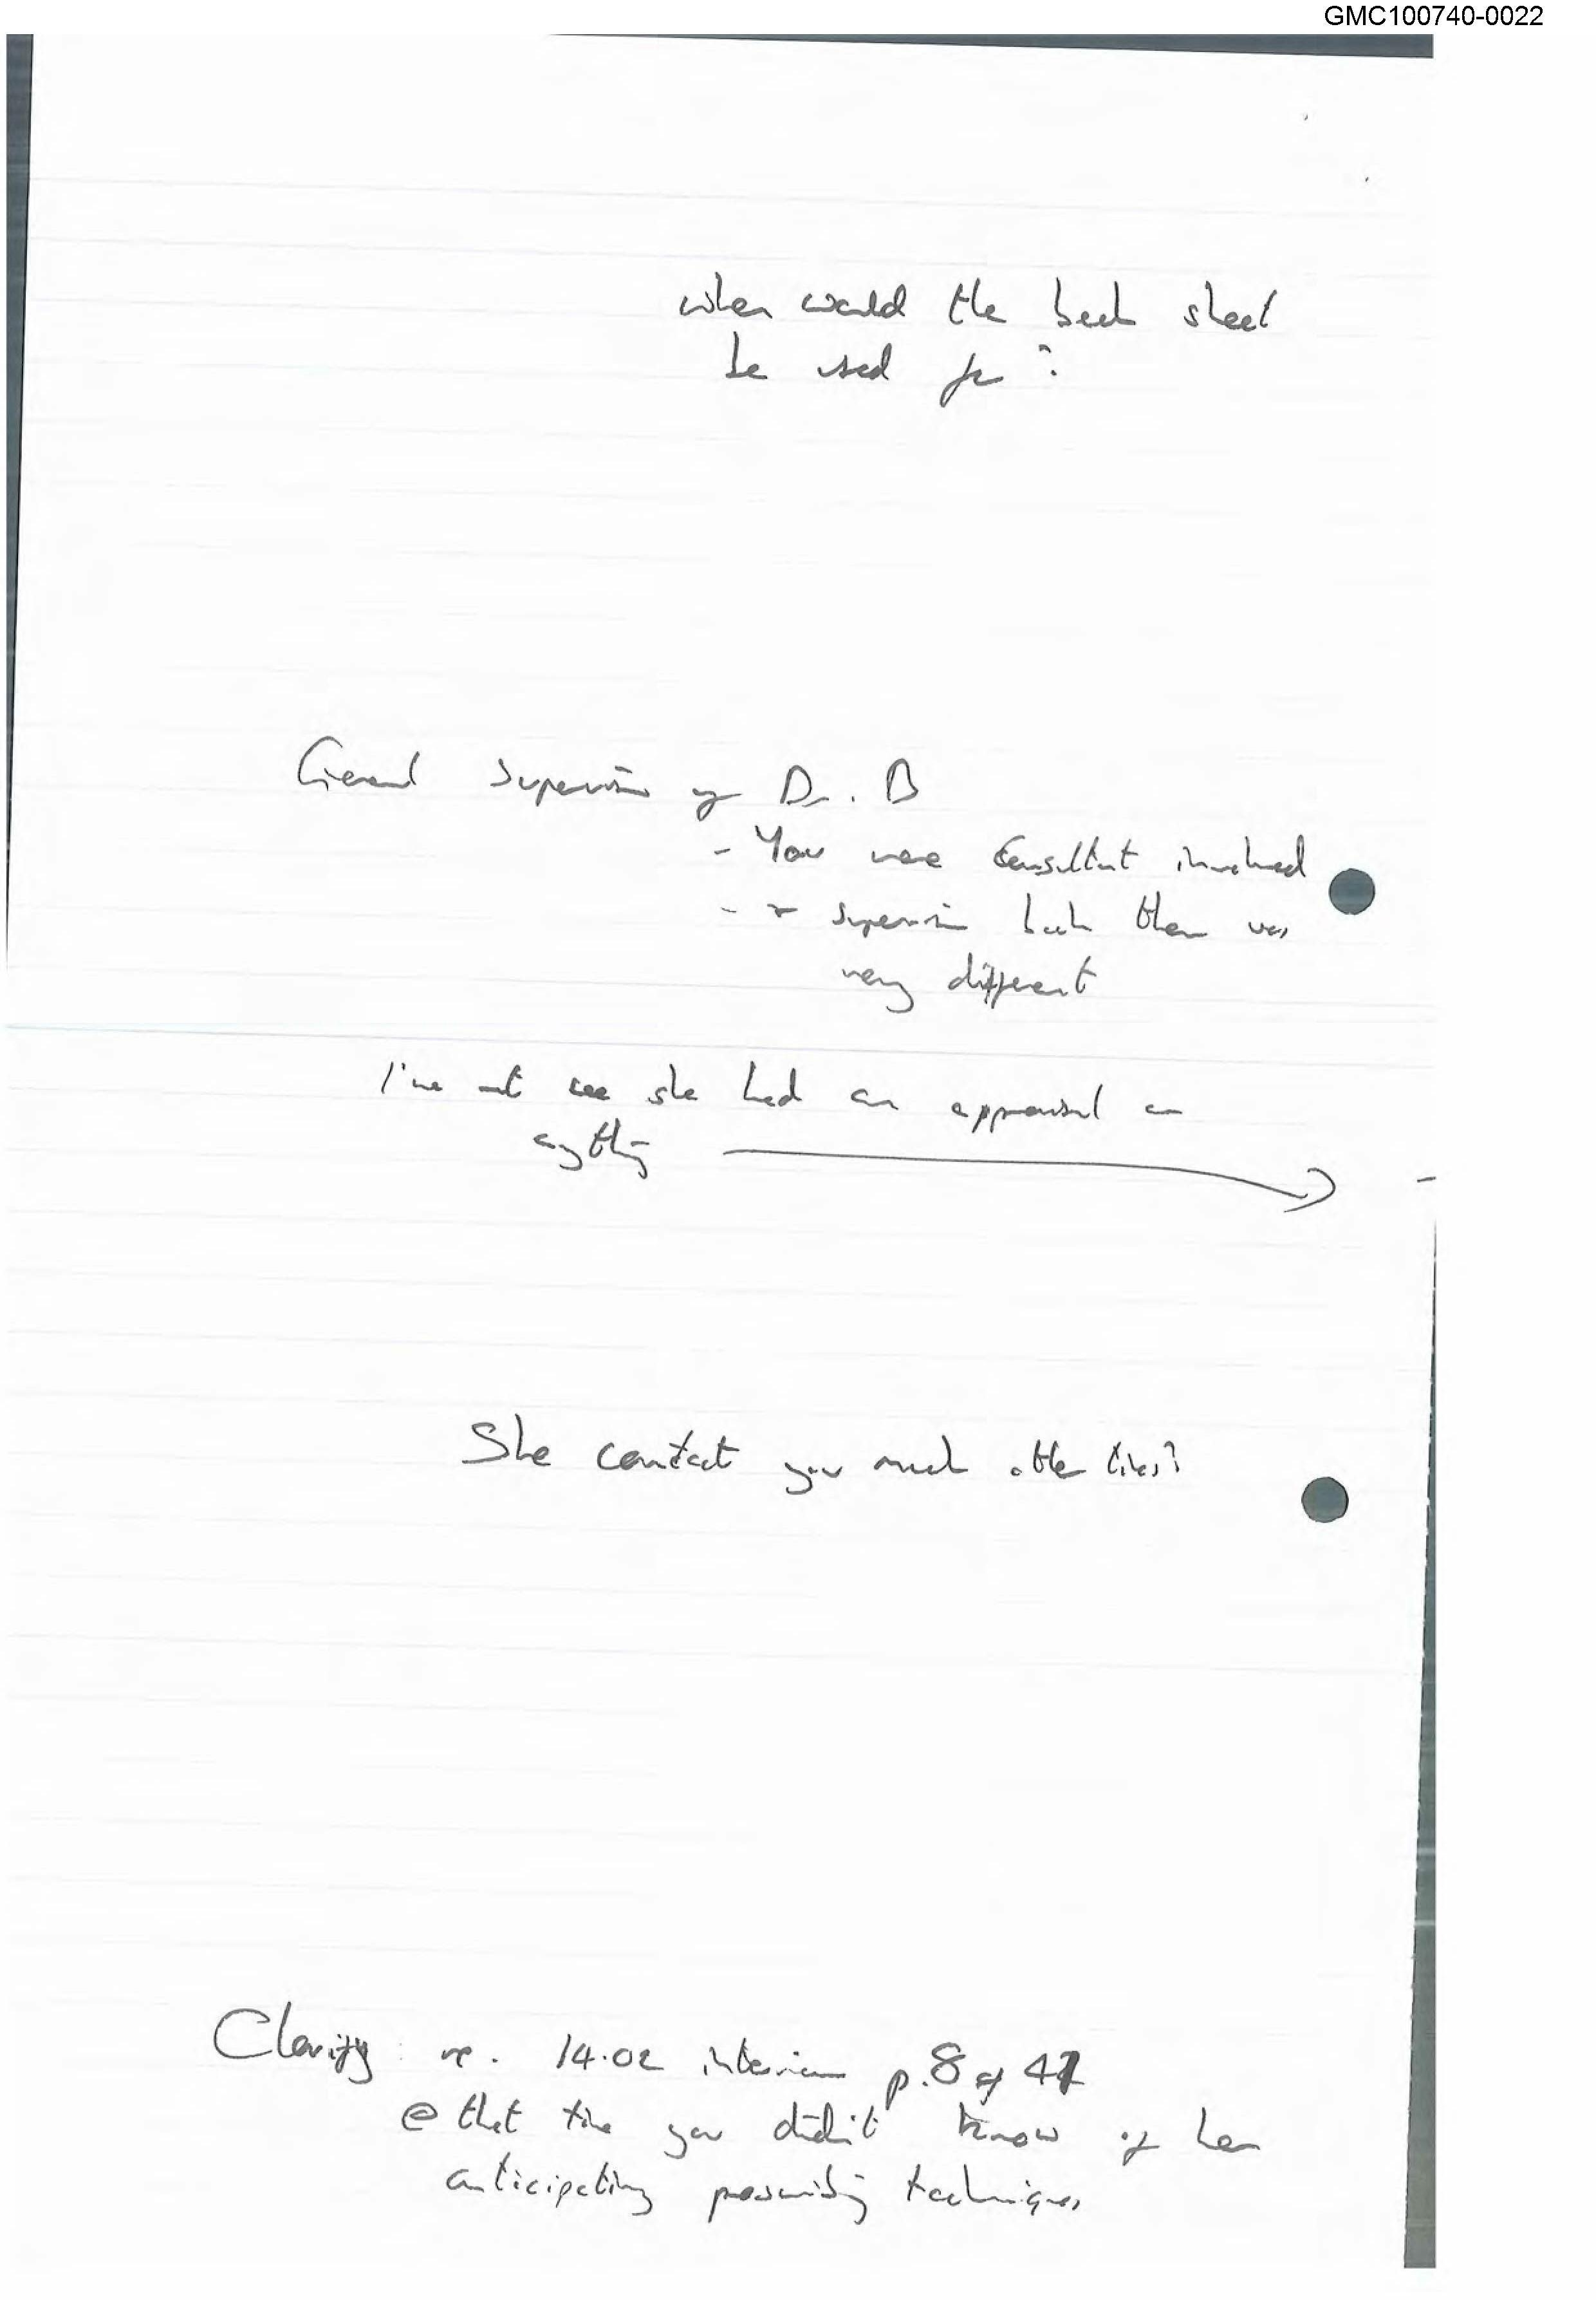 GMC100740-0022
when would the back sheet
be used for?
General supervision of Dr. B
- You were Consultant involved
- supervision back then was
very different
I've not see she had an appraisal or
anything
She contact you much other times?
Clarify re. 14.02 interview p.8 of 41
@ that time you didn't know of her
anticipating prescribing techniques